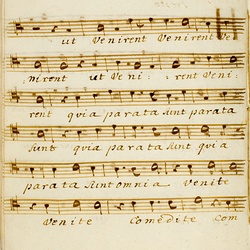 ut Venirent Venirent Ve
nirent ut Veni : : rent Veni:
rent quia parata sunt parata
sunt quia parata sunt quia
parata sunt omnia Venite
Venite Comedite Com